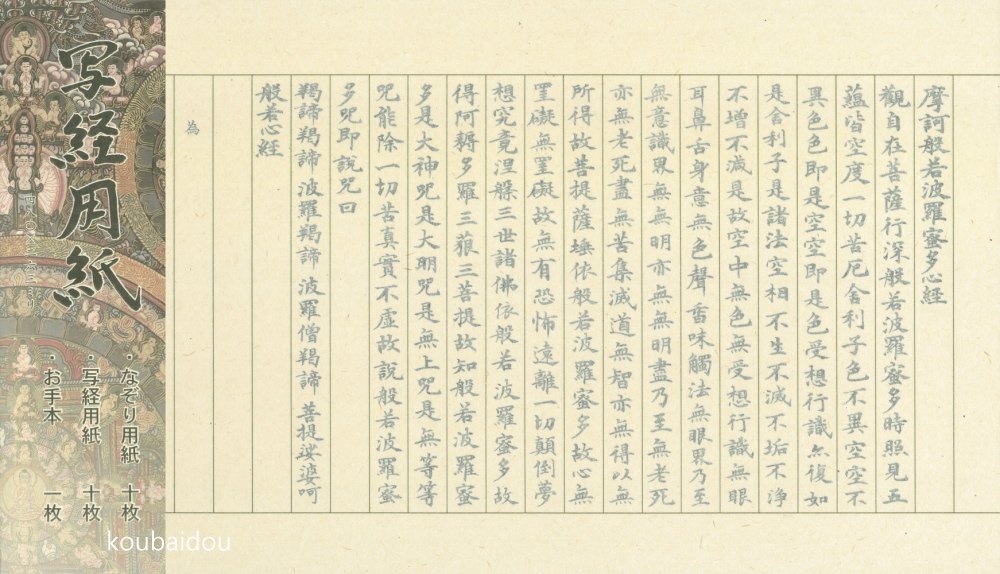 摩訶般若波羅蜜多心経
觀自在菩薩行深般若波羅蜜多時照見五
蘊皆空度一切苦厄舍利子色不異空空不
異色色即是空空即是色受想行識亦復如
是舍利子是諸法空相不生不滅不垢不浄
不增不減是故空中無色無受想行識無眼
耳鼻舌身意無色聲香味觸法無眼界乃至
無意識界無無明亦無無明盡乃至無老死
亦無老死盡無苦集滅道無智亦無得以無
所得故菩提薩埵依般若波羅蜜多故心無
罣礙無罣礙故無有恐怖遠離一切顛倒夢
想究竟涅槃三世諸佛依般若波羅蜜多故
得阿耨多羅三藐三菩提故知般若波羅蜜
多是大神咒是大明咒是無上咒是無等等
咒能除一切苦真實不虚故說般若波羅蜜
多咒即說咒曰
羯諦羯諦 波羅羯諦 波羅僧羯諦 菩提娑婆呵
般若心経
為
写経用紙
・なぞり用紙 十枚
・写経用紙 十枚
・お手本 一枚
koubaidou